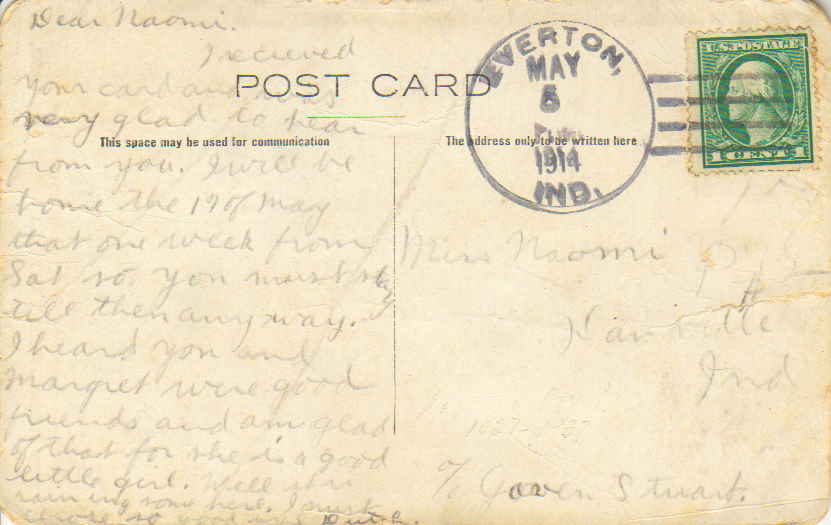 Dear Naomi.
I recieved
your card and was
very glad to hear
from you. I will be
home the 19 of May
that one week from
Sat so you must stay
till then anyway.
I heard you and
Margret were good
friends and am glad
of that for she is a good
little girl. Well it is
raining some here. I must
close so good Dutch.
POST CARD
This space may be used for communication
The address only to be written here
EVERTON,
MAY
5
1914
IND.
U.S. POSTAGE
1 CENT 1
Miss Naomi
Ind
c/o Goven Stuart.